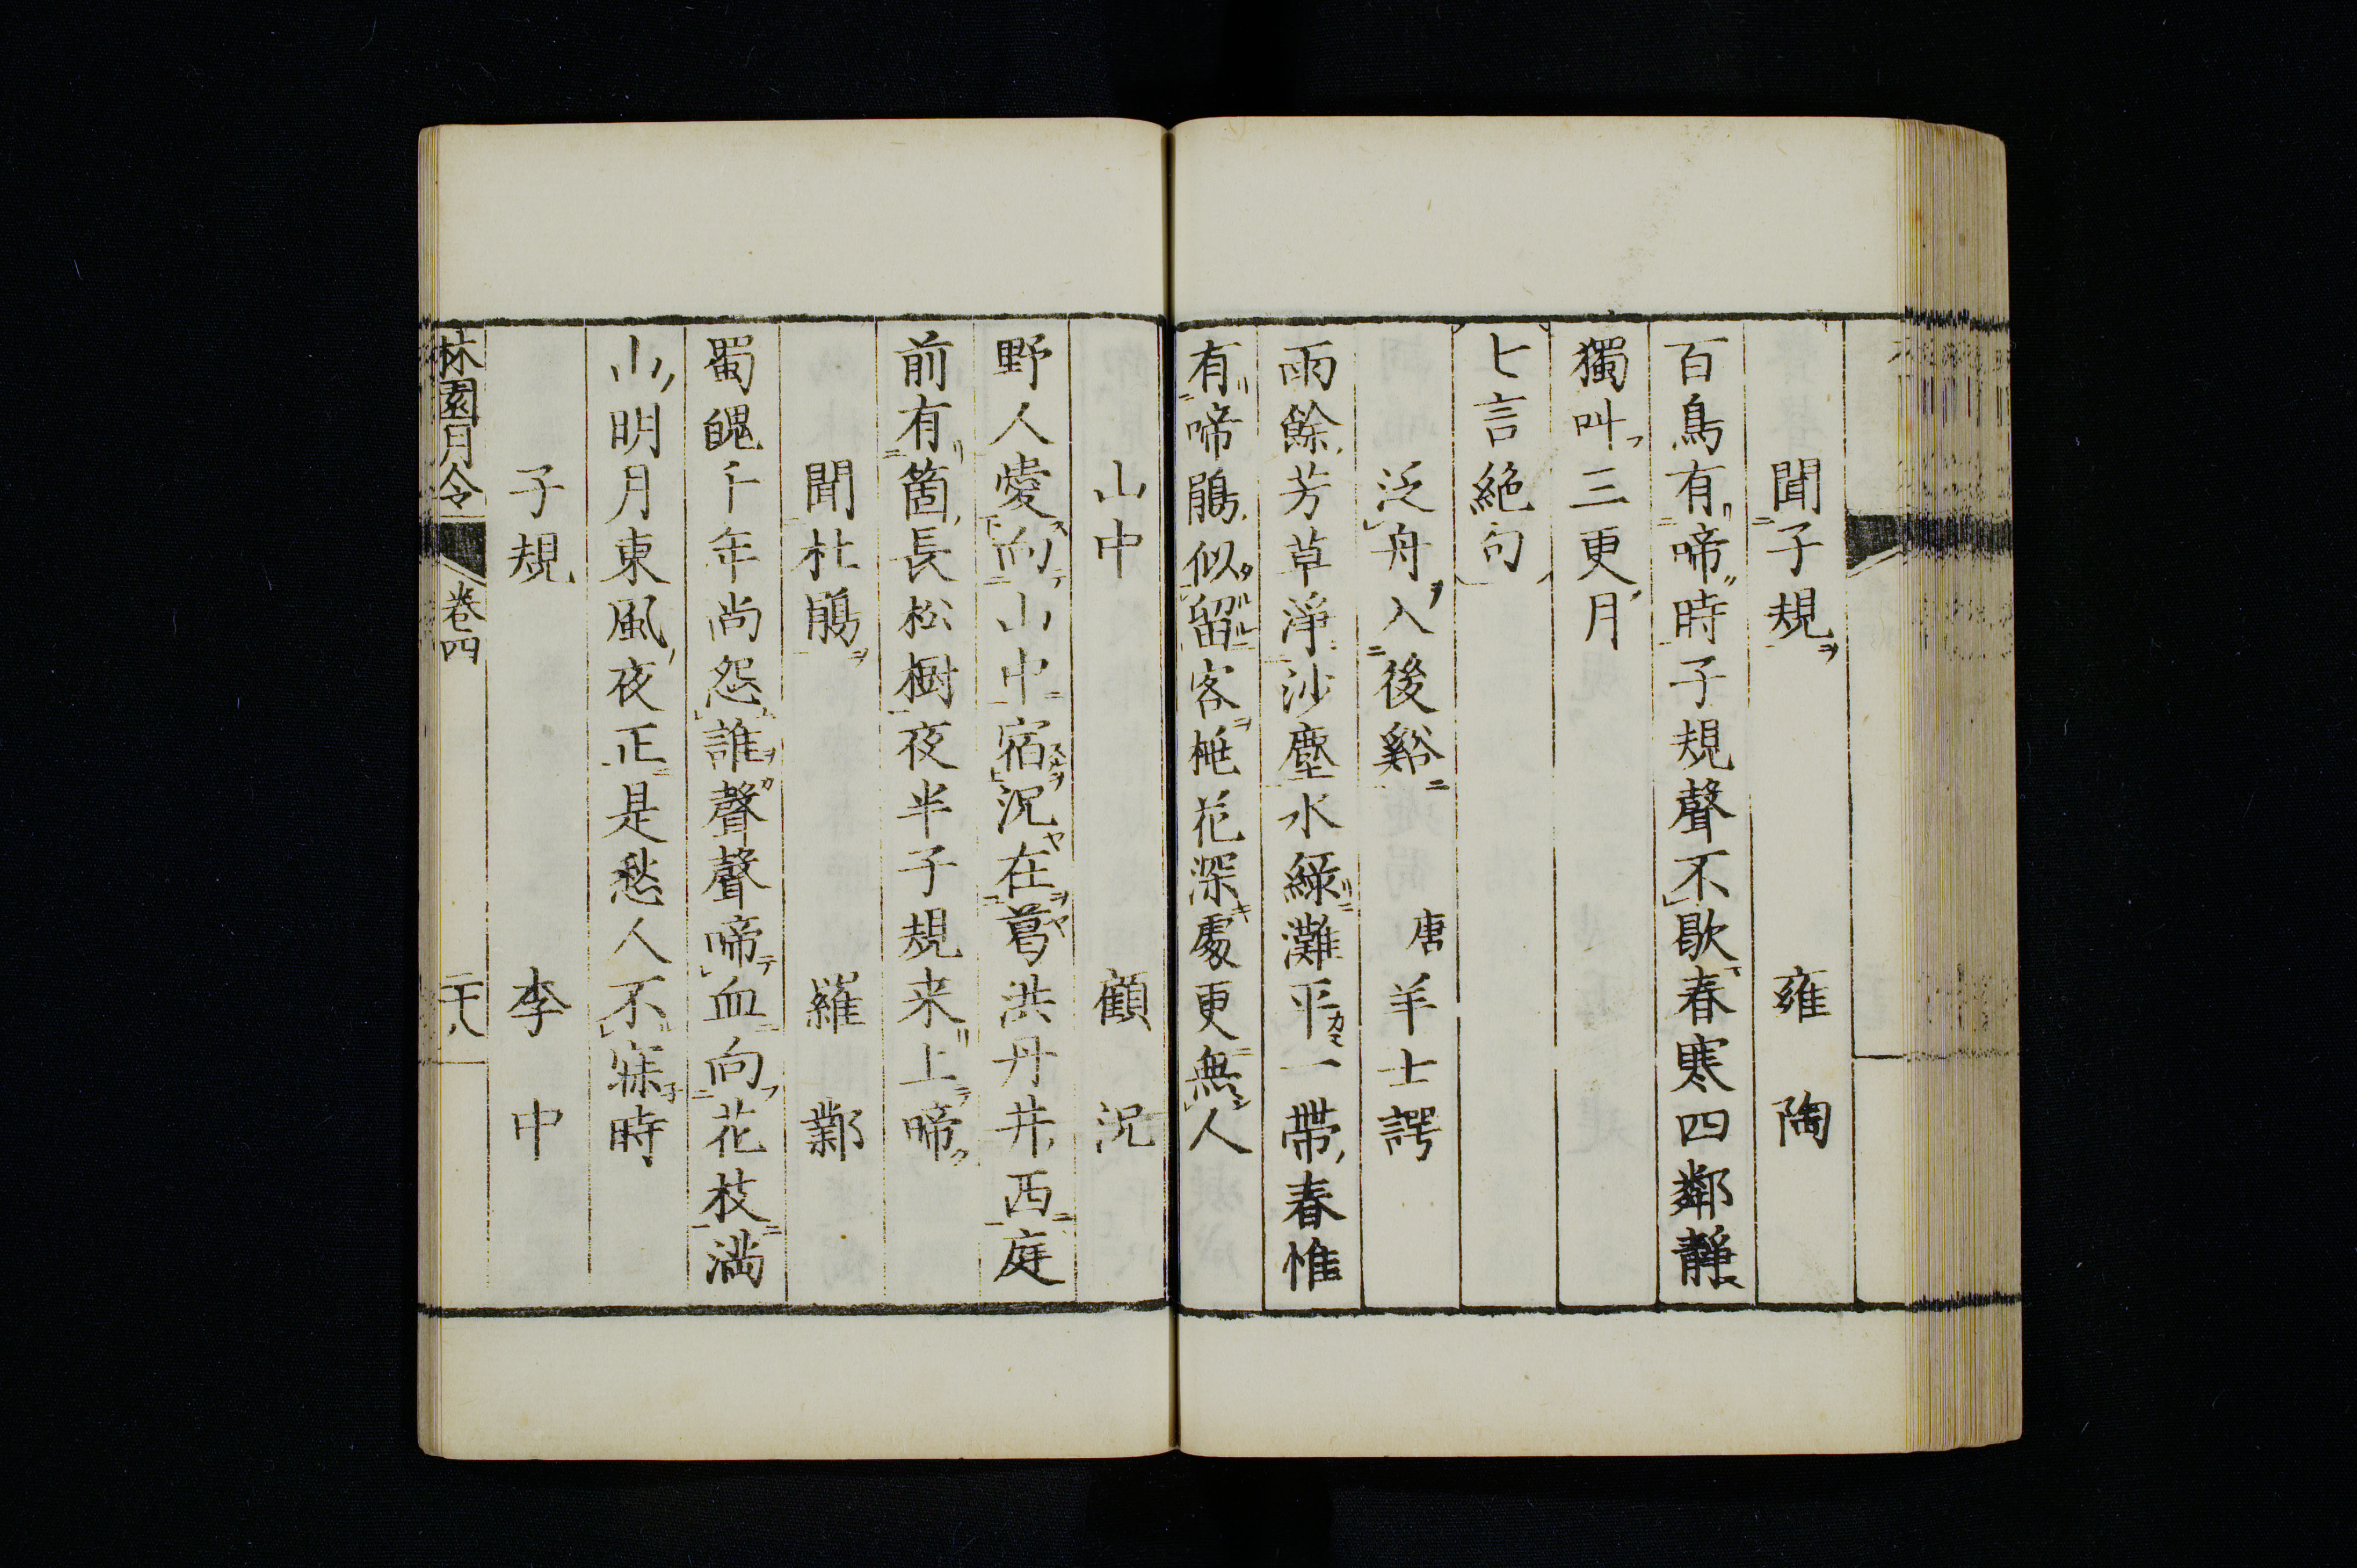 聞子規 雍陶
百鳥有啼時子規聲不歇春寒四鄰靜
獨叫三更月
七言絶句
泛舟入後谿 唐羊士諤
雨餘芳草淨沙塵水綠灘平一帶春惟
有啼鵑似留客桃花深處更無人
山中 顧況
野人愛向山中宿況在葛洪丹井西庭
前有箇長松樹夜半子規来上啼
聞杜鵑 羅鄴
蜀魄千年尚怨誰聲聲啼血向花枝満
山明月東風夜正是愁人不寐時
子規 李中
林園月令 卷四 二十八